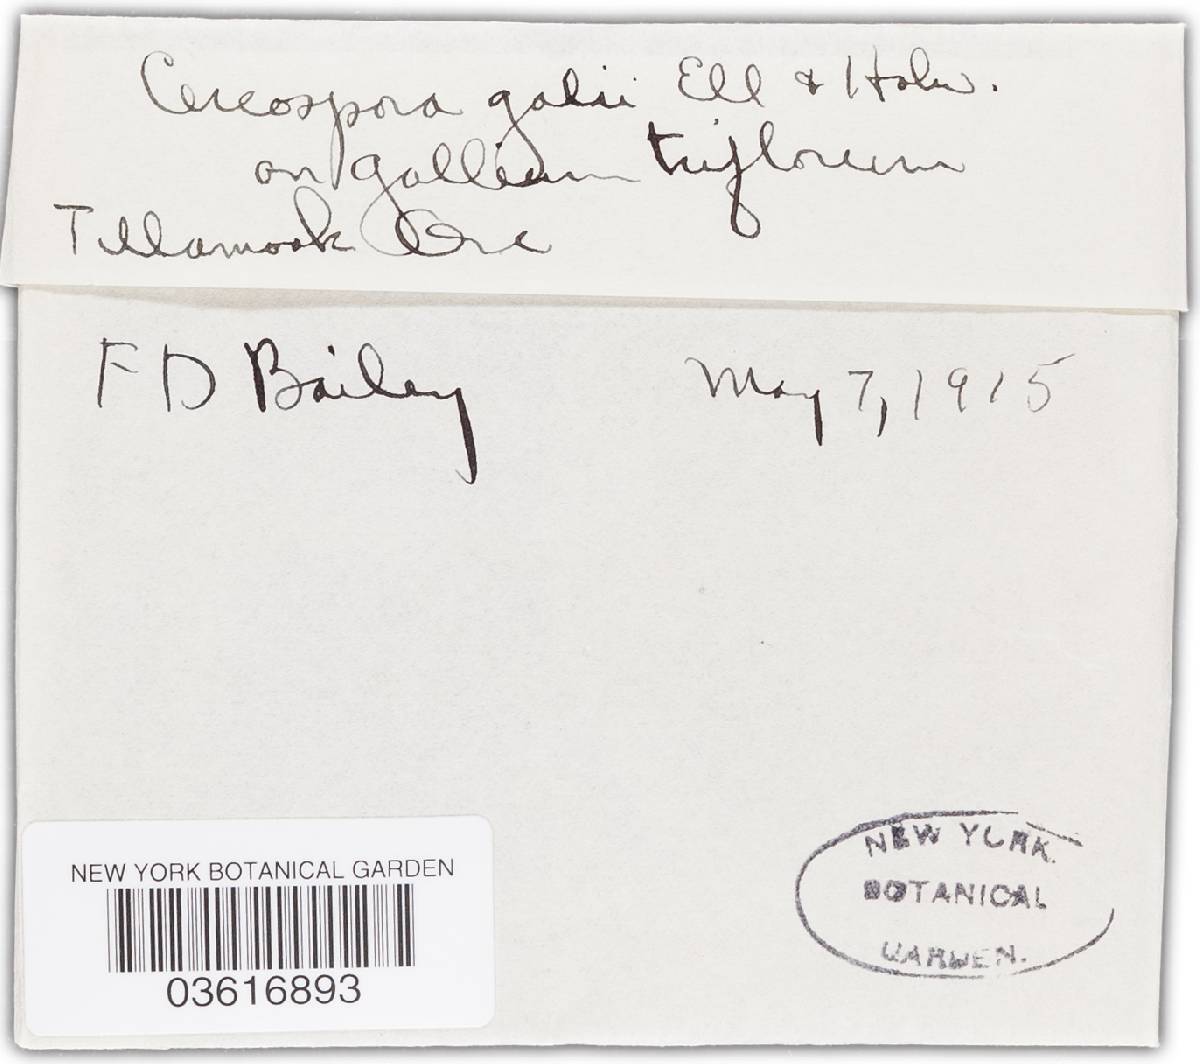 Cercospora galii Ell & Holw.
on Gallium triflorum
Tillamook Ore
F D Bailey May 7, 1915
NEW YORK BOTANICAL GARDEN
03616893
NEW YORK
BOTANICAL
GARDEN.